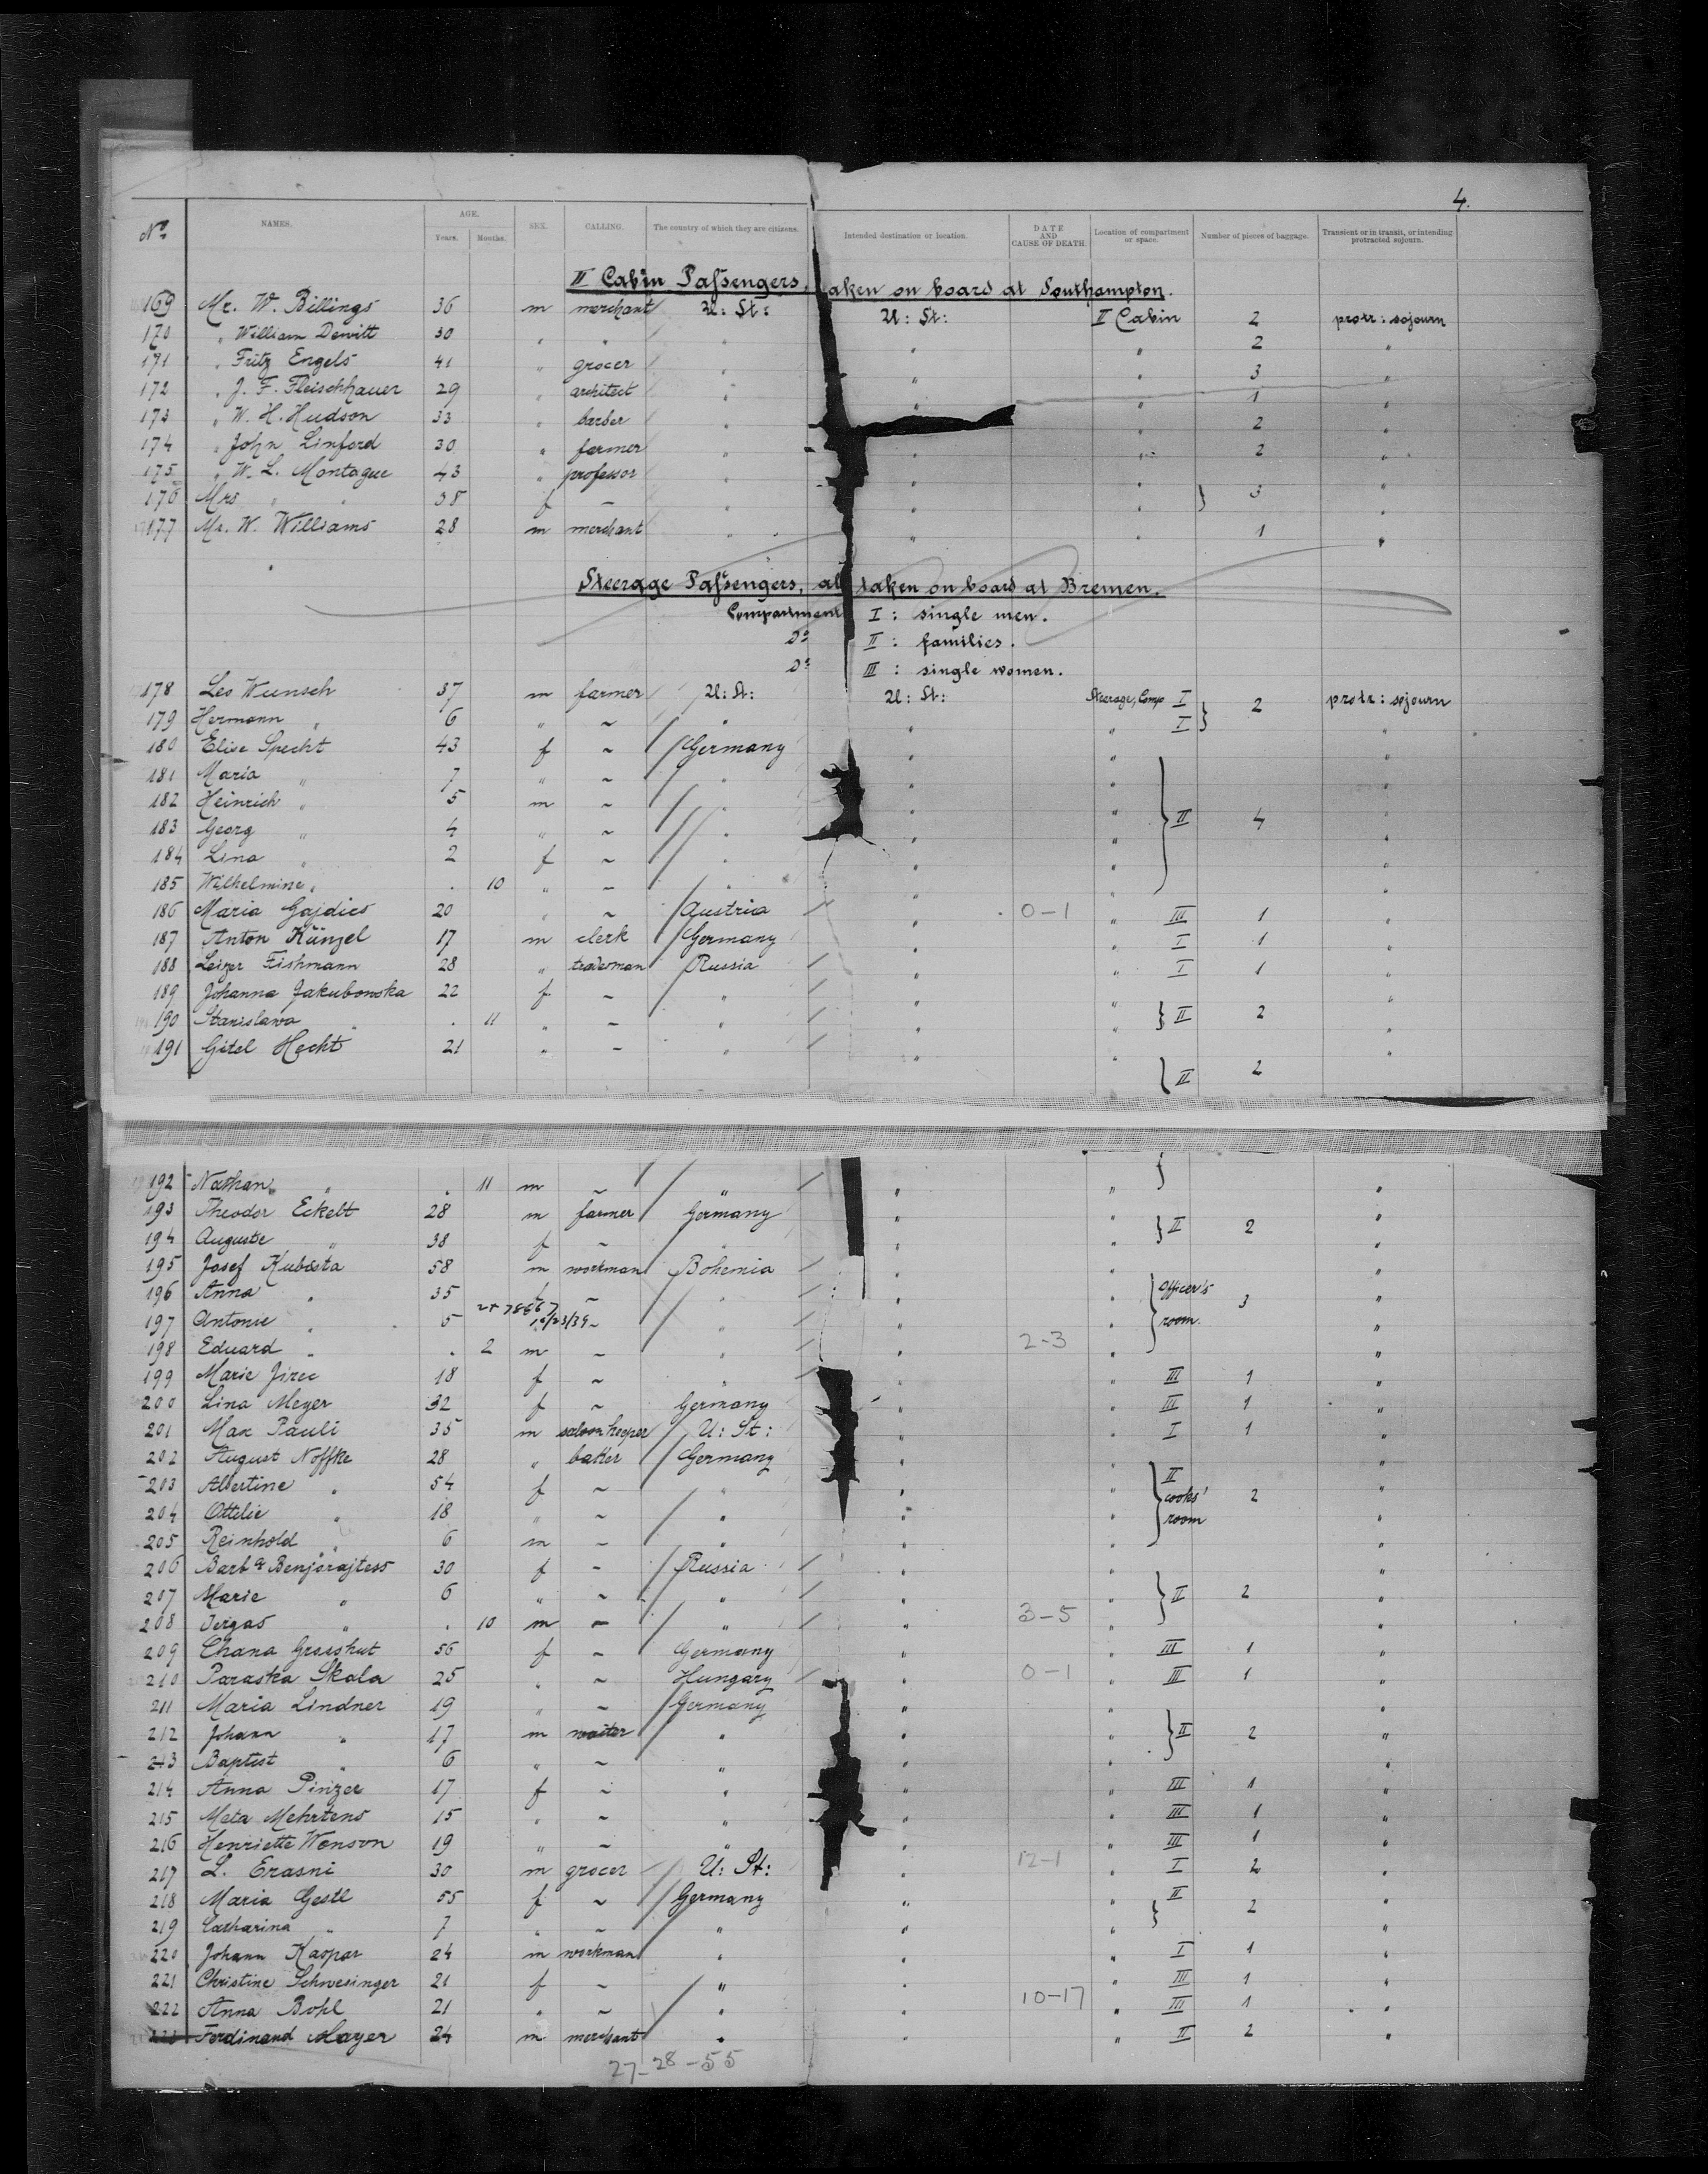 4.
No NAMES. AGE. Years. Months. SEX. CALLING. The country of which they are citizens. Intended destination or location. DATE AND CAUSE OF DEATH. Location of compartment or space. Number of pieces of baggage. Transient or in transit, or intending protracted sojourn.
II Cabin Passengers, taken on board at Southampton.
169 Mr. W. Billings 36 m merchant U: St: U: St: II Cabin 2 protr: sojourn
170 " William Dewitt 30 " " " " " 2 "
171 " Fritz Engels 41 " grocer " " " 3 "
172 " J. F. Fleischhauer 29 " architect " " " 1 "
173 " W. H. Hudson 33 " barber " " 2 "
174 " John Linford 30 " farmer " " " 2 "
175 " W. L. Montague 43 " professor " " " "
176 Mrs " " 38 f – " " " } 3 "
177 Mr. W. Williams 28 m merchant " " " 1 "
Steerage Passengers, all taken on board at Bremen.
Compartment I : single men.
Do II : families.
Do III : single women.
178 Leo Wunsch 37 m farmer U: St: U: St: Steerage, Comp I } 2 protr: sojourn
179 Hermann " 6 " ~ " " " I "
180 Elise Specht 43 f ~ Germany " " "
181 Maria " 7 " ~ " " " "
182 Heinrich " 5 m ~ " " " "
183 Georg " 4 " ~ " " " } II 4 "
184 Lina " 2 f ~ " " " "
185 Wilhelmine " . 10 " ~ " " " "
186 Maria Gajdics 20 " ~ Austria " 0-1 " III 1 "
187 Anton Künzel 17 m clerk Germany " " I 1 "
188 Leizer Fishmann 28 " tradesman Russia " " I 1 "
189 Johanna Jakubowska 22 f – " " " "
190 Stanislawa " . 11 " – " " " } II 2 "
191 Gitel Hecht 21 " – " " " } II 2 "
192 Nathan " . 11 m ~ " " " } "
193 Theodor Eckelt 28 m farmer Germany " " } II 2 "
194 Auguste " 38 f ~ " " " "
195 Josef Kubasta 58 m workman Bohemia " " "
196 Anna " 35 f – " " " } Officer's room. 3 "
2x 78667
197 Antonie " 5 12/23/39 – " " " "
198 Eduard " . 2 m – " " 2-3 " "
199 Marie Jirec 18 f ~ " " III 1 "
200 Lina Meyer 32 f ~ Germany " III 1 "
201 Max Pauli 35 m saloonkeeper U: St: " " I 1 "
202 August Noffke 28 " baker Germany " " "
203 Albertine " 54 f ~ " " " } II cooks' room 2 "
204 Ottilie " 18 " ~ " " " "
205 Reinhold " 6 m ~ " " " "
206 Barba Benjorajtess 30 f – Russia " " "
207 Marie " 6 " ~ " " " } II 2 "
208 Jergas " . 10 m – " " 3-5 " "
209 Chana Grosshut 56 f ~ Germany " " III 1 "
210 Paraska Skala 25 " ~ Hungary " 0-1 " III 1 "
211 Maria Lindner 19 " ~ Germany " " "
212 Johann " 17 m waiter " " " } II 2 "
213 Baptist " 6 " ~ " " " "
214 Anna Pinzer 17 f ~ " " " III 1 "
215 Meta Mehrtens 15 " ~ " " " III 1 "
216 Henriette Wenson 19 " ~ " " " III 1 "
217 L. Erasni 30 m grocer U: St: " 12-1 " I 2 "
218 Maria Gestl 55 f ~ Germany " " II "
219 Catharina " 7 " ~ " " " } 2 "
220 Johann Kaspar 24 m workman " " " I 1 "
221 Christine Schwesinger 21 f ~ " " " III 1 "
222 Anna Bohl 21 " ~ " " 10-17 " III 1 "
223 Ferdinand Mayer 24 m merchant " " " II 2 "
27-28-55